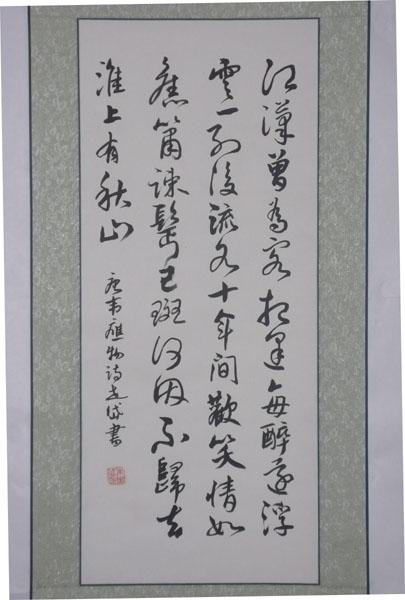 江漢曾為客相逢每醉還浮
雲一別後流水十年間歡笑情如
舊蕭疎鬢已斑何因不歸去
淮上有秋山
唐韋應物詩 書